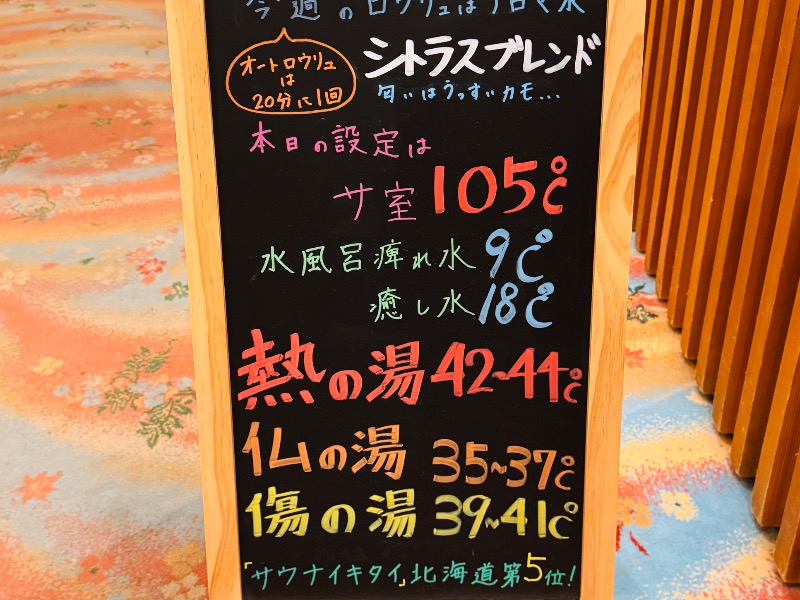 今週のロウリュはアロマ水
オートロウリュ
は
20分に1回
シトラスブレンド
匂いはうっすいカモ...
本日の設定は
サ室 105℃
水風呂痺れ水 9℃
癒し水 18℃
熱の湯 42~44℃
仏の湯 35~37℃
傷の湯 39~41℃
「サウナイキタイ」北海道第5位!